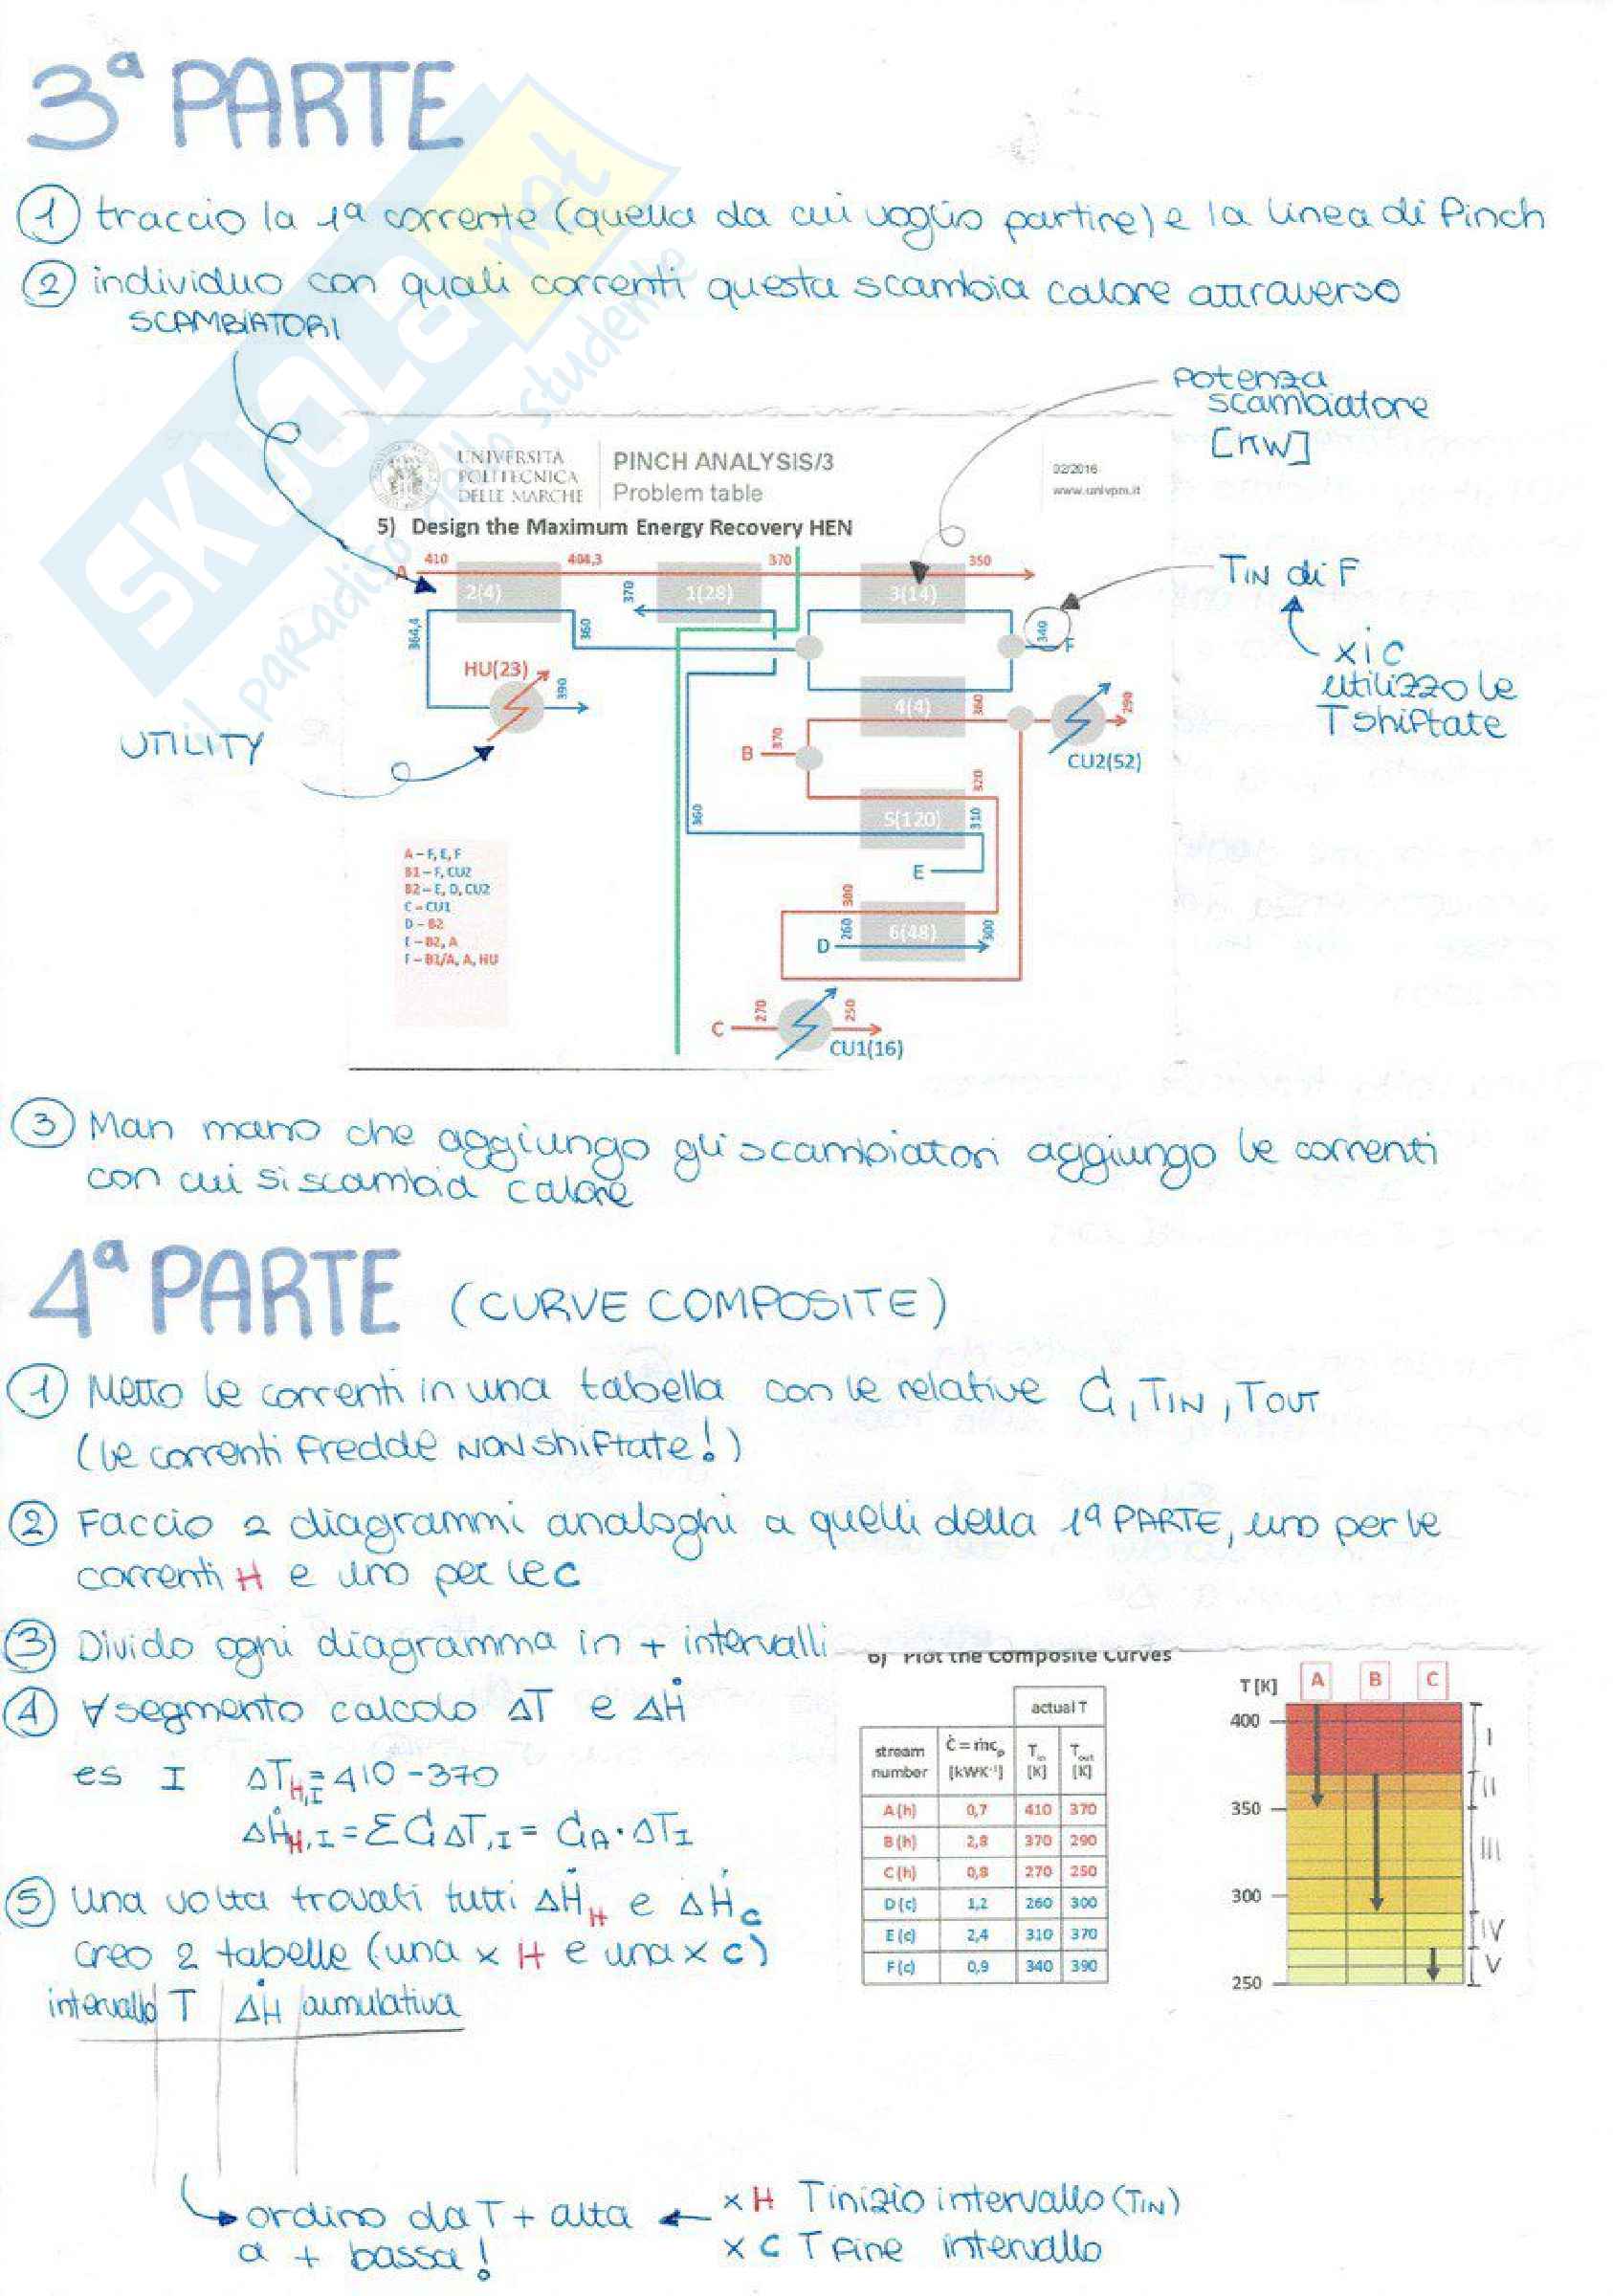 3ª PARTE
① traccio la 1ª corrente (quella da cui voglio partire) e la linea di Pinch
② individuo con quali correnti questa scambia calore attraverso
SCAMBIATORI
potenza
scambiatore
[kW]
UNIVERSITÀ
POLITECNICA
DELLE MARCHE
PINCH ANALYSIS/3
Problem table
02/2016
www.univpm.it
5) Design the Maximum Energy Recovery HEN
A 410 404,3 370 350
2(4) 1(28) 3(14)
370
364,4 360 340 F
TIN di F
x i C
utilizzo le
T shiftate
HU(23)
390
4(4) 360 290
UTILITY
B 370
CU2(52)
320
360 5(120) 310
E
A – F, E, F
B1 – F, CU2
B2 – E, D, CU2
C – CU1
D – B2
E – B2, A
F – B1/A, A, HU
300
D 260 6(48) 300
C 270 250
CU1(16)
③ Man mano che aggiungo gli scambiatori aggiungo le correnti
con cui si scambia calore
4ª PARTE (CURVE COMPOSITE)
① Metto le correnti in una tabella con le relative Ċ, TIN, TOUT
(le correnti fredde NON shiftate!)
② Faccio 2 diagrammi analoghi a quelli della 1ª PARTE, uno per le
correnti H e uno per le C
③ Divido ogni diagramma in + intervalli
④ ∀ segmento calcolo ΔT e ΔḢ
es I ΔTH,I = 410 - 370
ΔḢH,I = ΣĊΔT,I = ĊA · ΔTI
⑤ Una volta trovati tutti ΔḢH e ΔḢC
creo 2 tabelle (una x H e una x C)
intervallo | T | ΔḢ | cumulativa
6) Plot the Composite Curves
actual T
stream number Ċ = ṁcp [kWK⁻¹] Tin [K] Tout [K]
A (h) 0,7 410 370
B (h) 2,8 370 290
C (h) 0,8 270 250
D (c) 1,2 260 300
E (c) 2,4 310 370
F (c) 0,9 340 390
T [K] A B C
400
350
300
250
I
II
III
IV
V
ordino da T + alta
a + bassa!
x H T inizio intervallo (TIN)
x C T fine intervallo
SKUOLA.net
il paradiso dello studente